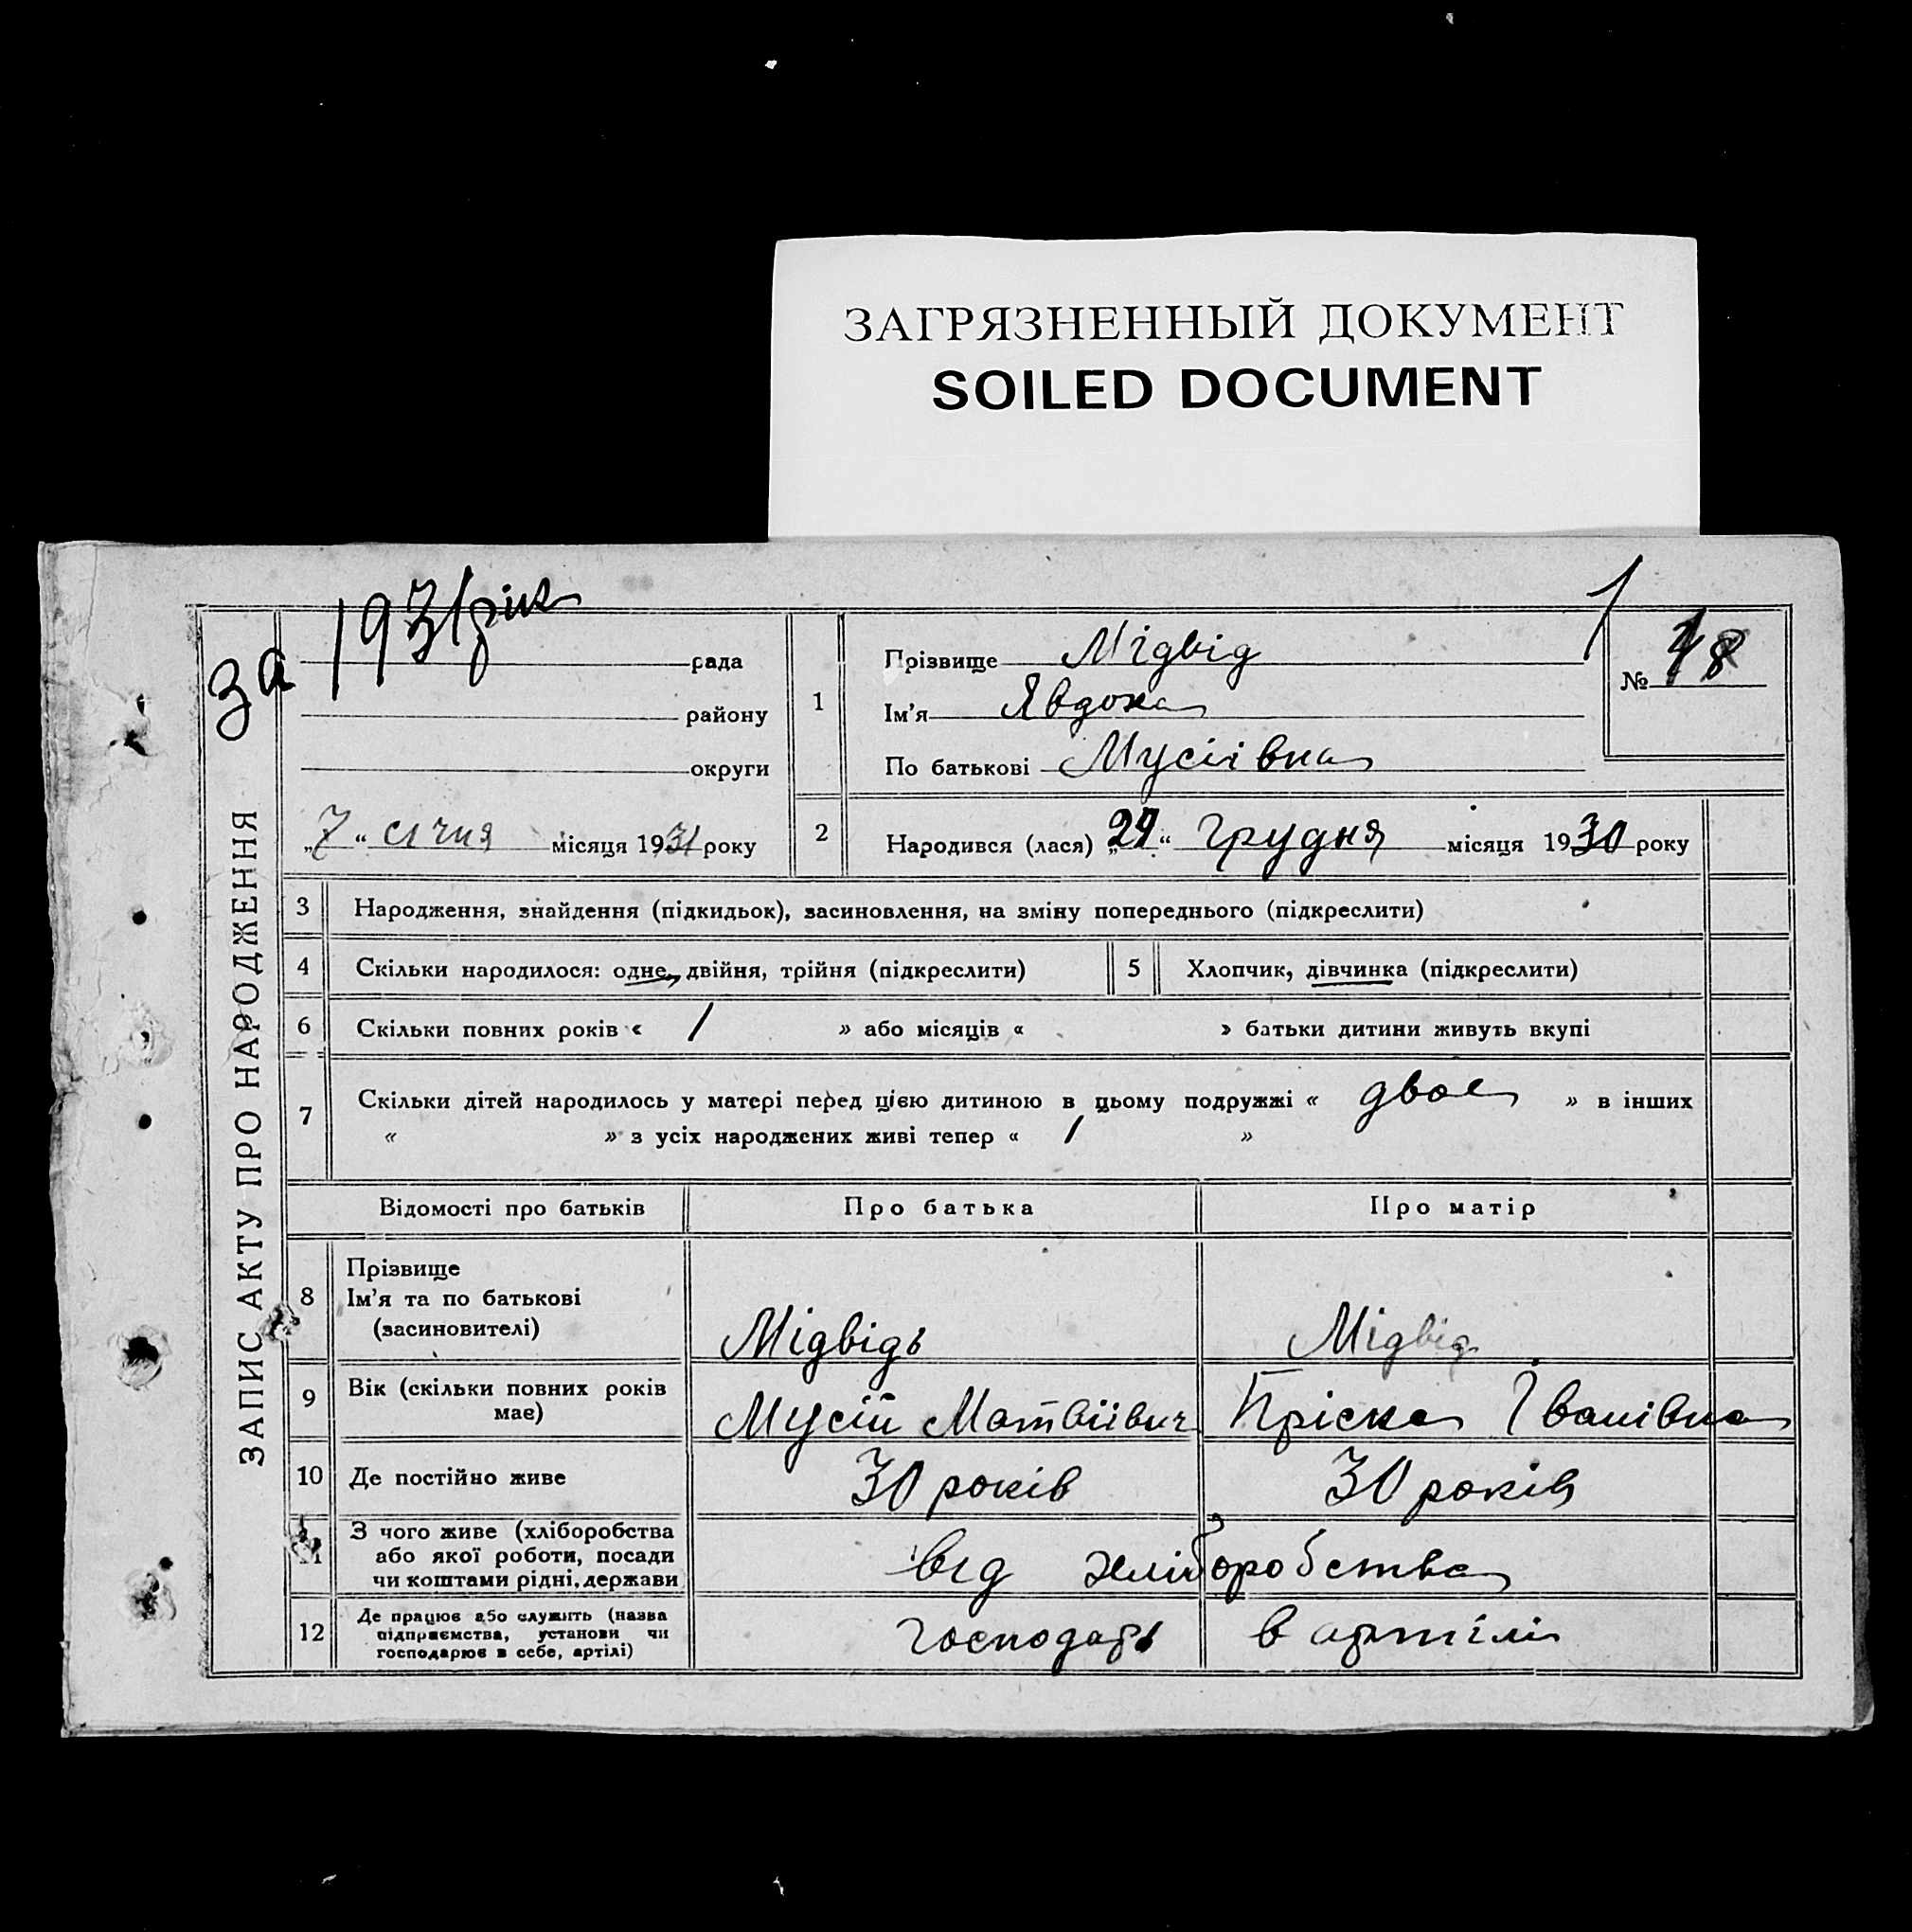 ЗАГРЯЗНЕННЫЙ ДОКУМЕНТ
SOILED DOCUMENT
за 1931 рік
ЗАПИС АКТУ ПРО НАРОДЖЕННЯ
рада
району
округи
„7“ січня місяця 1931 року
1
Прізвище Мідвід
Ім'я Явдоха
По батькові Мусіівна
1
№ 8
2 Народився (лася) „29“ грудня місяця 1930 року
3 Народження, знайдення (підкидьок), засиновлення, на зміну попереднього (підкреслити)
4 Скільки народилося: одне, двійня, трійня (підкреслити) 5 Хлопчик, дівчинка (підкреслити)
6 Скільки повних років « / » або місяців « » батьки дитини живуть вкупі
7 Скільки дітей народилось у матері перед цією дитиною в цьому подружжі « двое » в інших
« » з усіх народжених живі тепер « / »
Відомості про батьків Про батька Про матір
8 Прізвище
Ім'я та по батькові
(засиновителі) Мідвідь Мідвід
9 Вік (скільки повних років
має) Мусій Матвіівич Пріска Іванівна
10 Де постійно живе 30 років 30 років
11 З чого живе (хліборобства
або якої роботи, посади
чи коштами рідні, держави від хліборобства
12 Де працює або служить (назва
підприємства, установи чи
господарює в себе, артілі) господарь в артілі